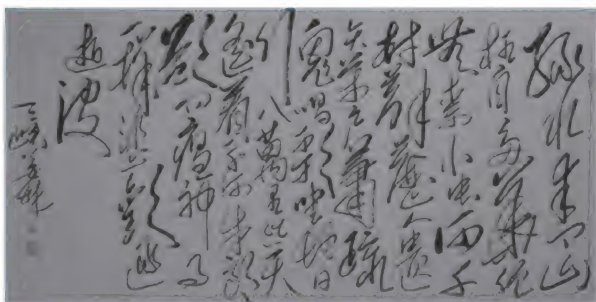 绿水青山
枉自多華佗
無奈小虫何千
村薜荔人遗
矢萬户蕭疏
鬼唱歌坐地日
行八萬里巡天
遥看一千河牛郎
欲问瘟神事
一样悲歡逐
逝波